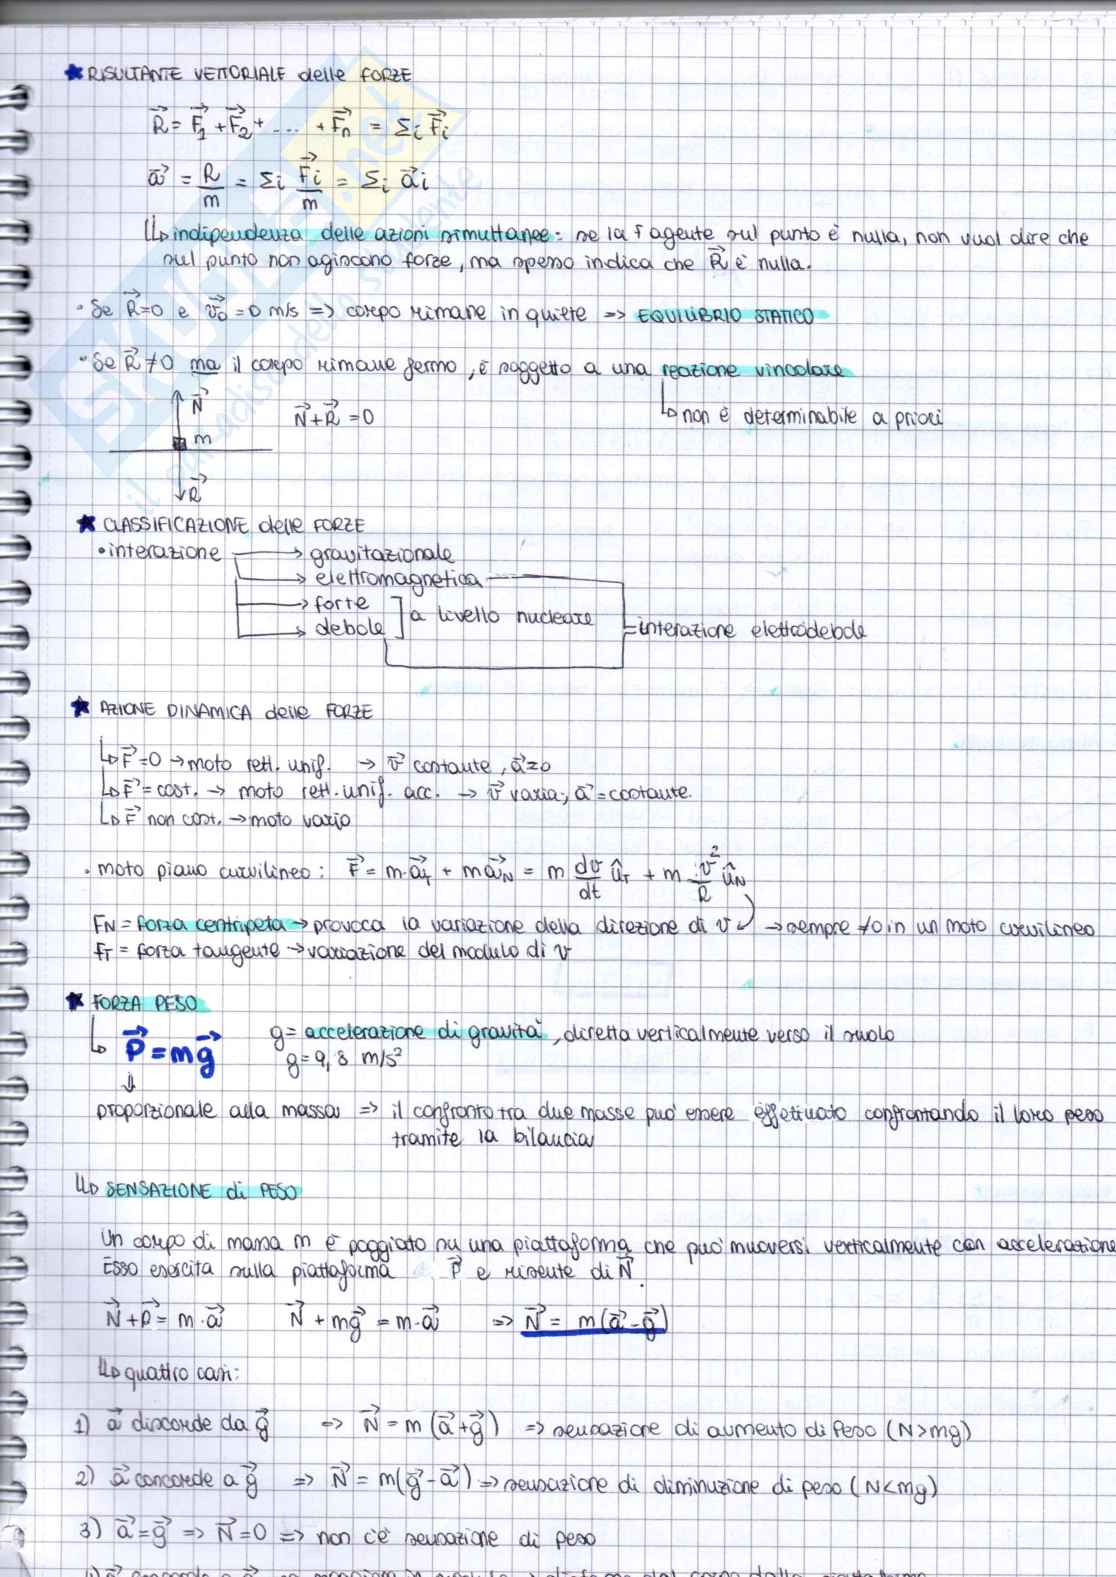 ★ RISULTANTE VETTORIALE delle FORZE
R⃗ = F⃗₁ + F⃗₂ + ... + F⃗n = Σi F⃗i
a⃗ = R/m = Σi F⃗i/m = Σi a⃗i
↳ indipendenza delle azioni simultanee: se la f agente sul punto è nulla, non vuol dire che
sul punto non agiscono forze, ma spesso indica che R⃗ è nulla.
• Se R⃗=0 e v⃗₀=0 m/s => corpo rimane in quiete => EQUILIBRIO STATICO
• Se R⃗≠0 ma il corpo rimane fermo, è soggetto a una reazione vincolare
↳ non è determinabile a priori
N⃗
N⃗+R⃗=0
m
R⃗
★ CLASSIFICAZIONE delle FORZE
• interazione → gravitazionale
→ elettromagnetica
→ forte
→ debole ] a livello nucleare
interazione elettrodebole
★ AZIONE DINAMICA delle FORZE
↳ F⃗=0 → moto rett. unif. → v⃗ costante, a⃗=0
↳ F⃗=cost. → moto rett. unif. acc. → v⃗ varia, a⃗=costante
↳ F⃗ non cost. → moto vario
• moto piano curvilineo: F⃗ = m·a⃗T + ma⃗N = m dv/dt ûT + m v²/R ûN
FN = forza centripeta → provoca la variazione della direzione di v → sempre ≠0 in un moto curvilineo
fT = forza tangente → variazione del modulo di v
★ FORZA PESO
↳ P⃗ = mg⃗
g = accelerazione di gravità, diretta verticalmente verso il suolo
g = 9,8 m/s²
↓
proporzionale alla massa => il confronto tra due masse può essere effettuato confrontando il loro peso
tramite la bilancia
↳ SENSAZIONE di PESO
Un corpo di massa m è poggiato su una piattaforma che può muoversi verticalmente con accelerazione
Esso esercita sulla piattaforma P⃗ e risente di N⃗.
N⃗+P⃗ = m·a⃗ N⃗+mg⃗ = m·a⃗ => N⃗ = m(a⃗-g⃗)
↳ quattro casi:
1) a⃗ discorde da g⃗ => N⃗ = m(a⃗+g⃗) => sensazione di aumento di Peso (N>mg)
2) a⃗ concorde a g⃗ => N⃗ = m(g⃗-a⃗) => sensazione di diminuzione di peso (N<mg)
3) a⃗=g⃗ => N⃗=0 => non c'è sensazione di peso